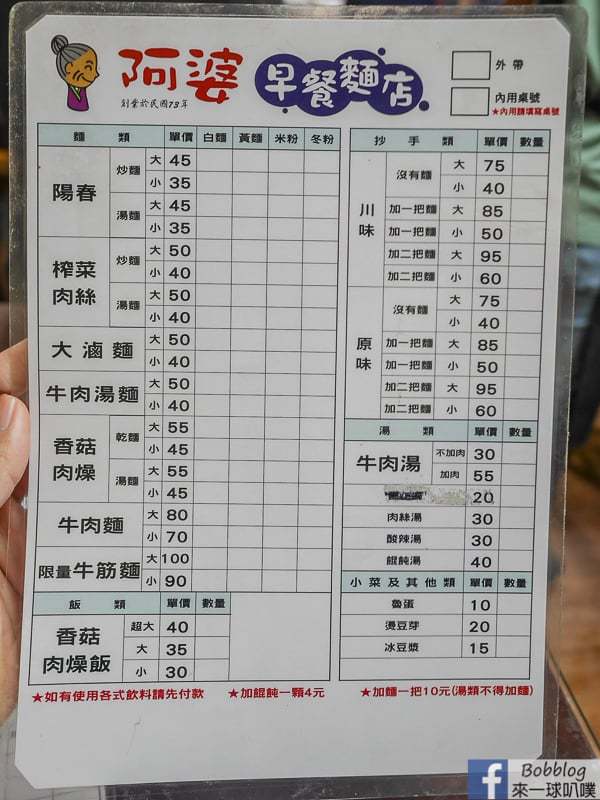 阿婆 早餐麵店
創業於民國73年
外帶
內用桌號
★內用請填寫桌號
麵類 單價 白麵 黃麵 米粉 冬粉
陽春 炒麵 大 45
小 35
湯麵 大 45
小 35
榨菜肉絲 炒麵 大 50
小 40
湯麵 大 50
小 40
大滷麵 大 50
小 40
牛肉湯麵 大 50
小 40
香菇肉燥 乾麵 大 55
小 45
湯麵 大 55
小 45
牛肉麵 大 80
小 70
限量牛筋麵 大 100
小 90
飯類 單價 數量
香菇肉燥飯 超大 40
大 35
小 30
抄手類 單價 數量
川味 沒有麵 大 75
小 40
加一把麵 大 85
加一把麵 小 50
加二把麵 大 95
加二把麵 小 60
原味 沒有麵 大 75
小 40
加一把麵 大 85
加一把麵 小 50
加二把麵 大 95
加二把麵 小 60
湯類 單價 數量
牛肉湯 不加肉 30
加肉 55
20
肉絲湯 30
酸辣湯 30
餛飩湯 40
小菜及其他類 單價 數量
魯蛋 10
燙豆芽 20
冰豆漿 15
★如有使用各式飲料請先付款 ★加餛飩一顆4元 ★加麵一把10元(湯類不得加麵)
f Bobblog
來一球叭噗